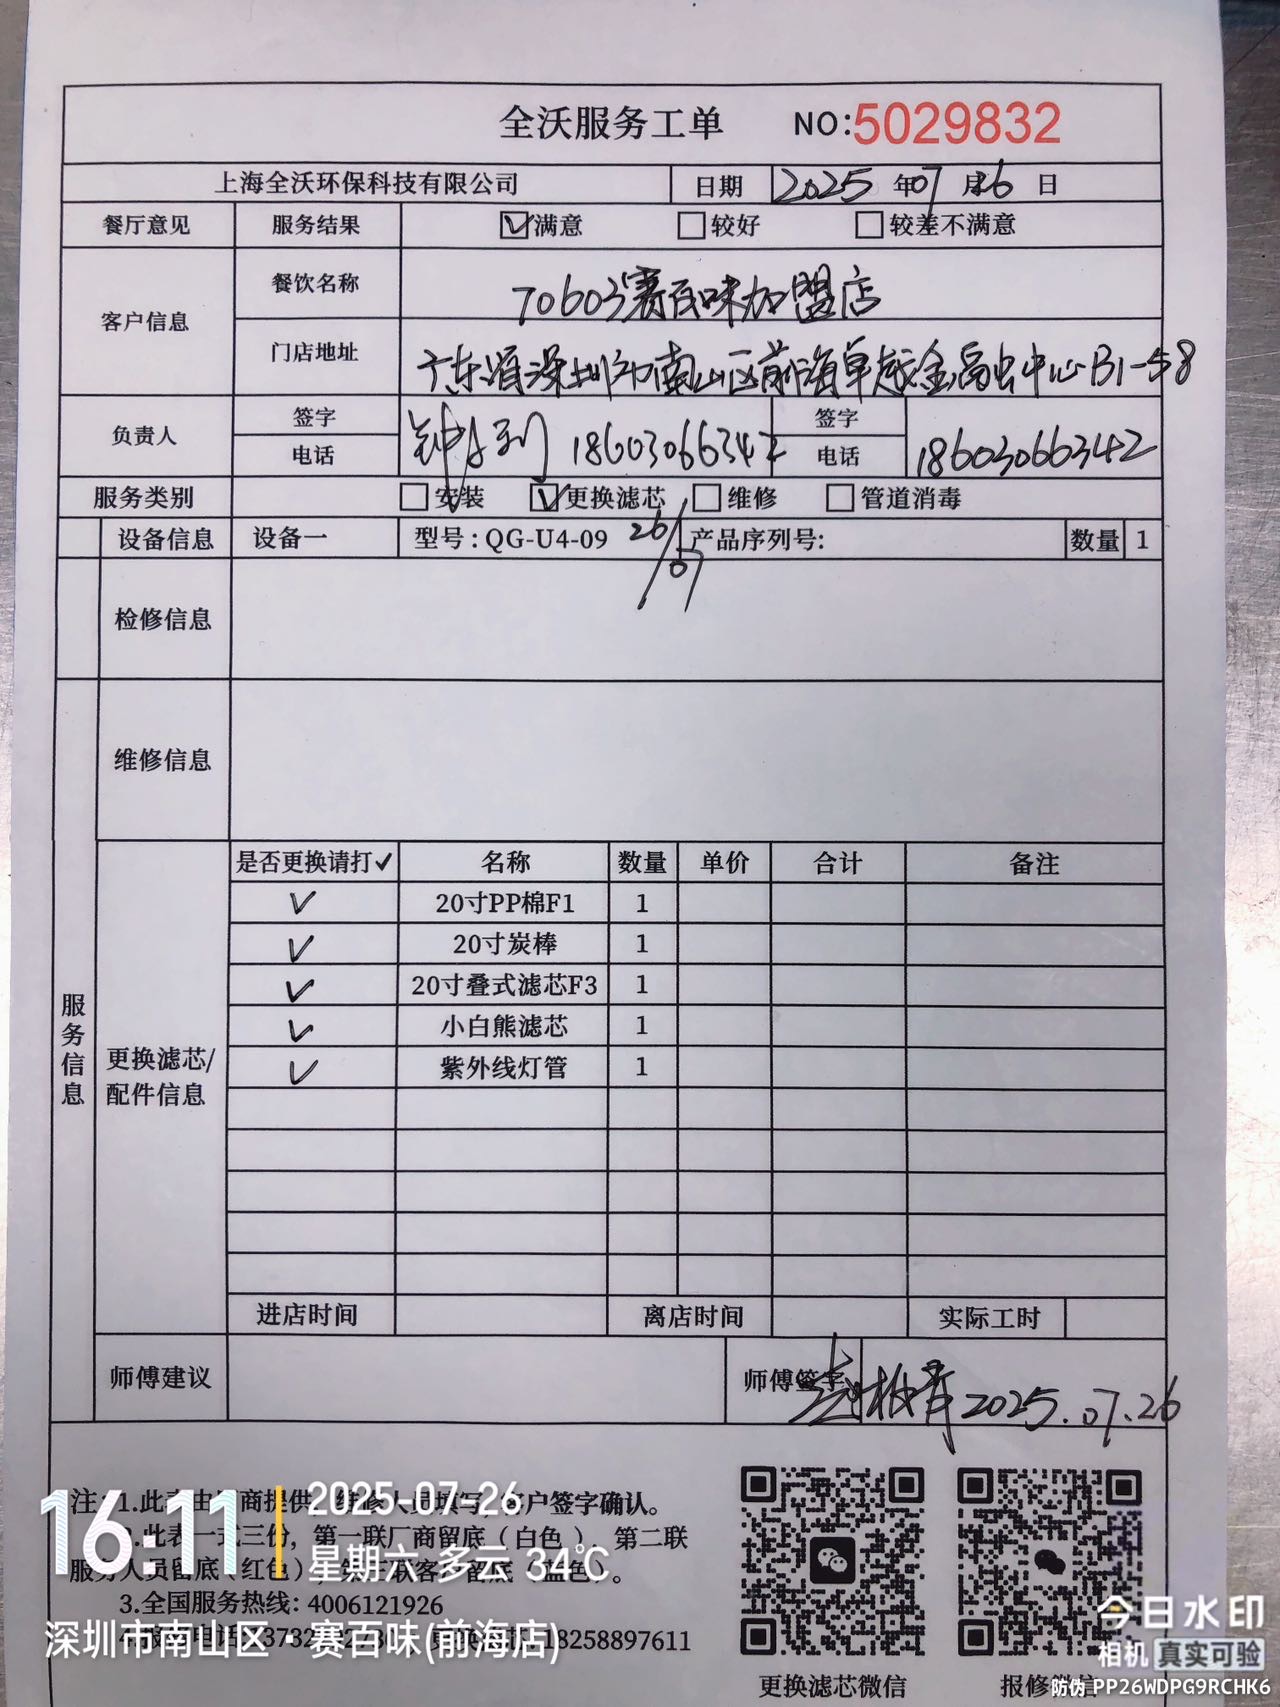 全沃服务工单 NO:5029832
上海全沃环保科技有限公司 日期 2025 年 07 月 26 日
餐厅意见 服务结果 ☑满意 □较好 □较差不满意
客户信息 餐饮名称 70603赛百味加盟店
门店地址 广东省深圳市南山区前海卓越金融中心B1-58
负责人 签字 签字
电话 18603066342 电话 18603066342
服务类别 □安装 ☑更换滤芯 □维修 □管道消毒
设备信息 设备一 型号:QG-U4-09 26/07 产品序列号: 数量 1
检修信息
维修信息
服务信息
更换滤芯/配件信息
是否更换请打✓ 名称 数量 单价 合计 备注
✓ 20寸PP棉F1 1
✓ 20寸炭棒 1
✓ 20寸叠式滤芯F3 1
✓ 小白熊滤芯 1
✓ 紫外线灯管 1
进店时间 离店时间 实际工时
师傅建议 师傅签字 2025.07.26
注:1.此表由厂商提供,维修人员填写,客户签字确认。
2.此表一式三份,第一联厂商留底(白色),第二联
服务人员留底(红色),第三联客户留底(蓝色)。
3.全国服务热线:4006121926
18258897611
更换滤芯微信 报修微信
16:11 2025-07-26
星期六 多云 34℃
深圳市南山区·赛百味(前海店)
今日水印
相机 真实可验
防伪 PP26WDPG9RCHK6